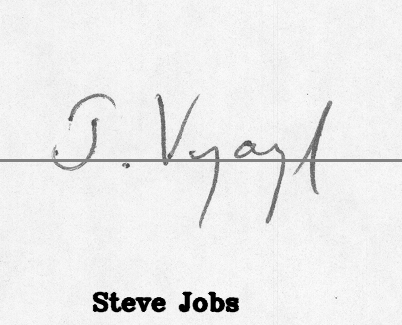 J. Vyayl
Steve Jobs